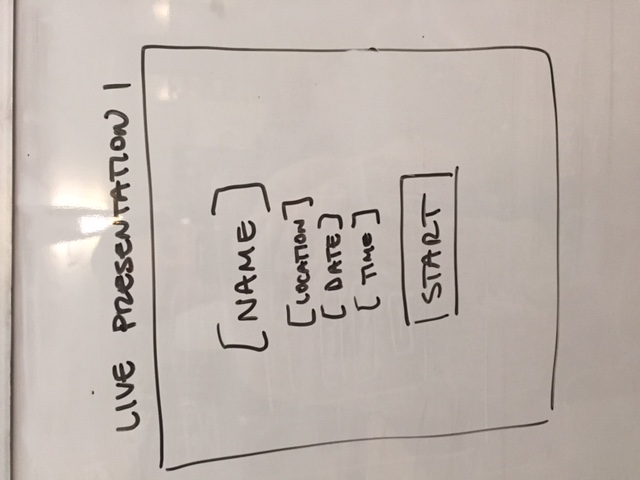 LIVE PRESENTATION 1
[NAME]
[LOCATION]
[DATE]
[TIME]
START